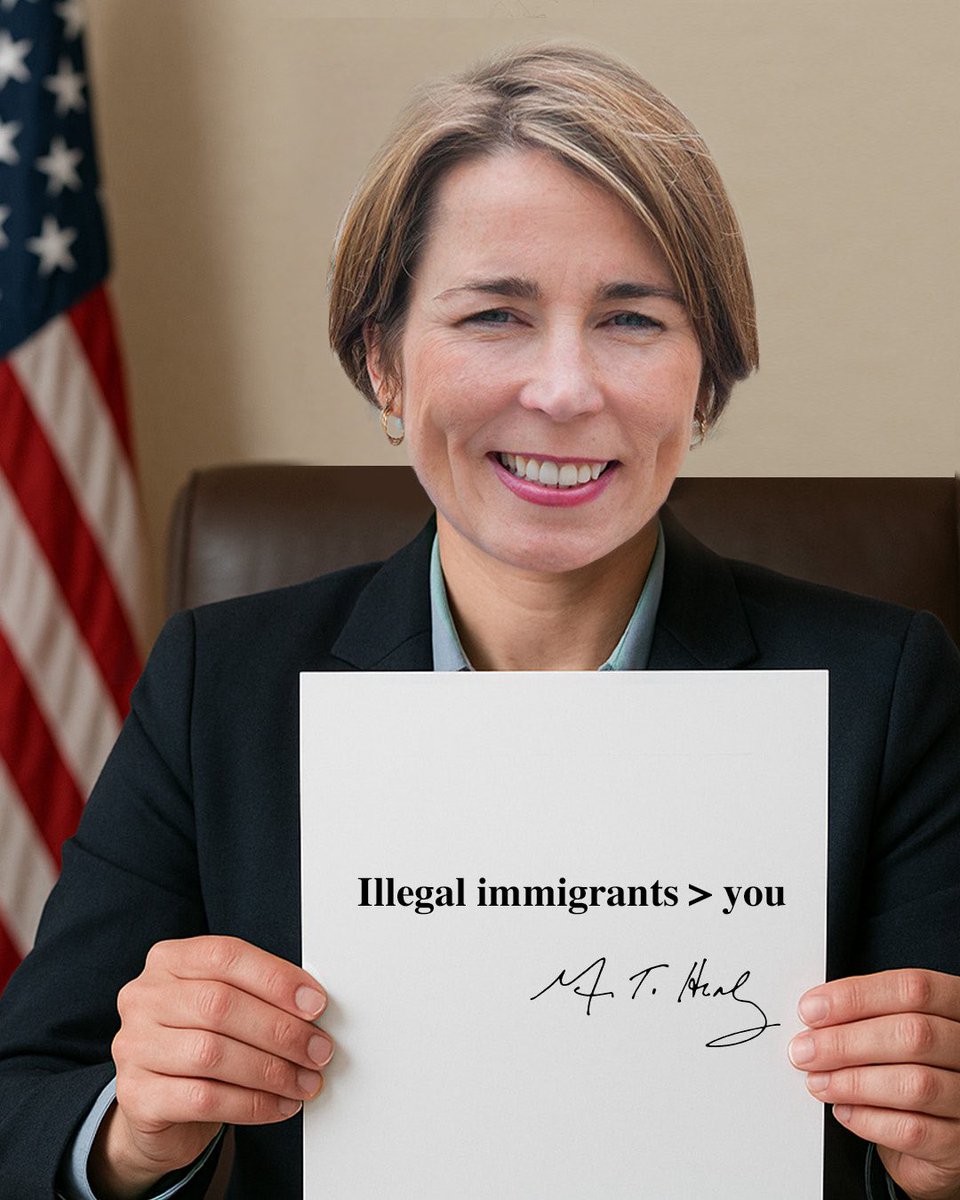 Illegal immigrants > you
M. T. Healy